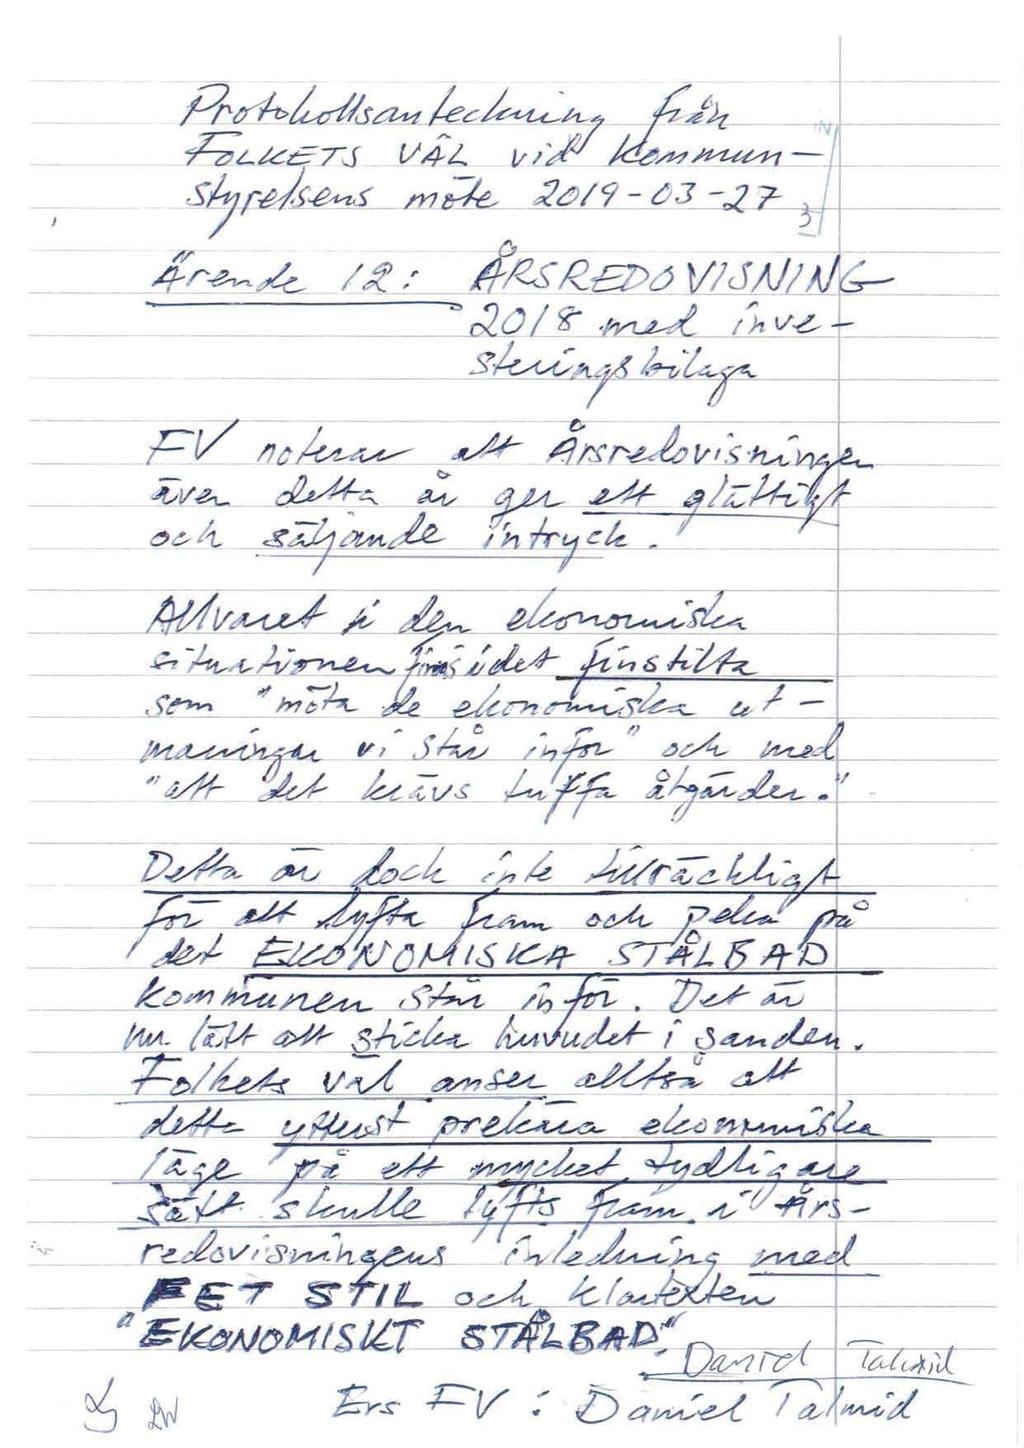 Protokollsanteckning från
FOLKETS VÄL vid Kommun-
styrelsens möte 2019-03-27
Ärende 12: ÅRSREDOVISNING
2018 med inve-
steringsbilaga
FV noterar att Årsredovisningen
även detta år ger ett glättigt
och säljande intryck.
Allvaret i den ekonomiska
situationen finns i det finstilta
som "möta de ekonomiska ut-
maningar vi står inför" och med
"att det krävs tuffa åtgärder."
Detta är dock inte tillräckligt
för att lyfta fram och peka på
det EKONOMISKA STÅLBAD
Kommunen står inför. Det är
nu lätt att sticka huvudet i sanden.
Folkets väl anser alltså att
detta ytterst prekära ekonomiska
läge på ett mycket tydligare
sätt skulle lyfts fram i Års-
redovisningens inledning med
FET STIL och klartexten
"EKONOMISKT STÅLBAD".
Daniel Talmid
Ers FV: Daniel Talmid